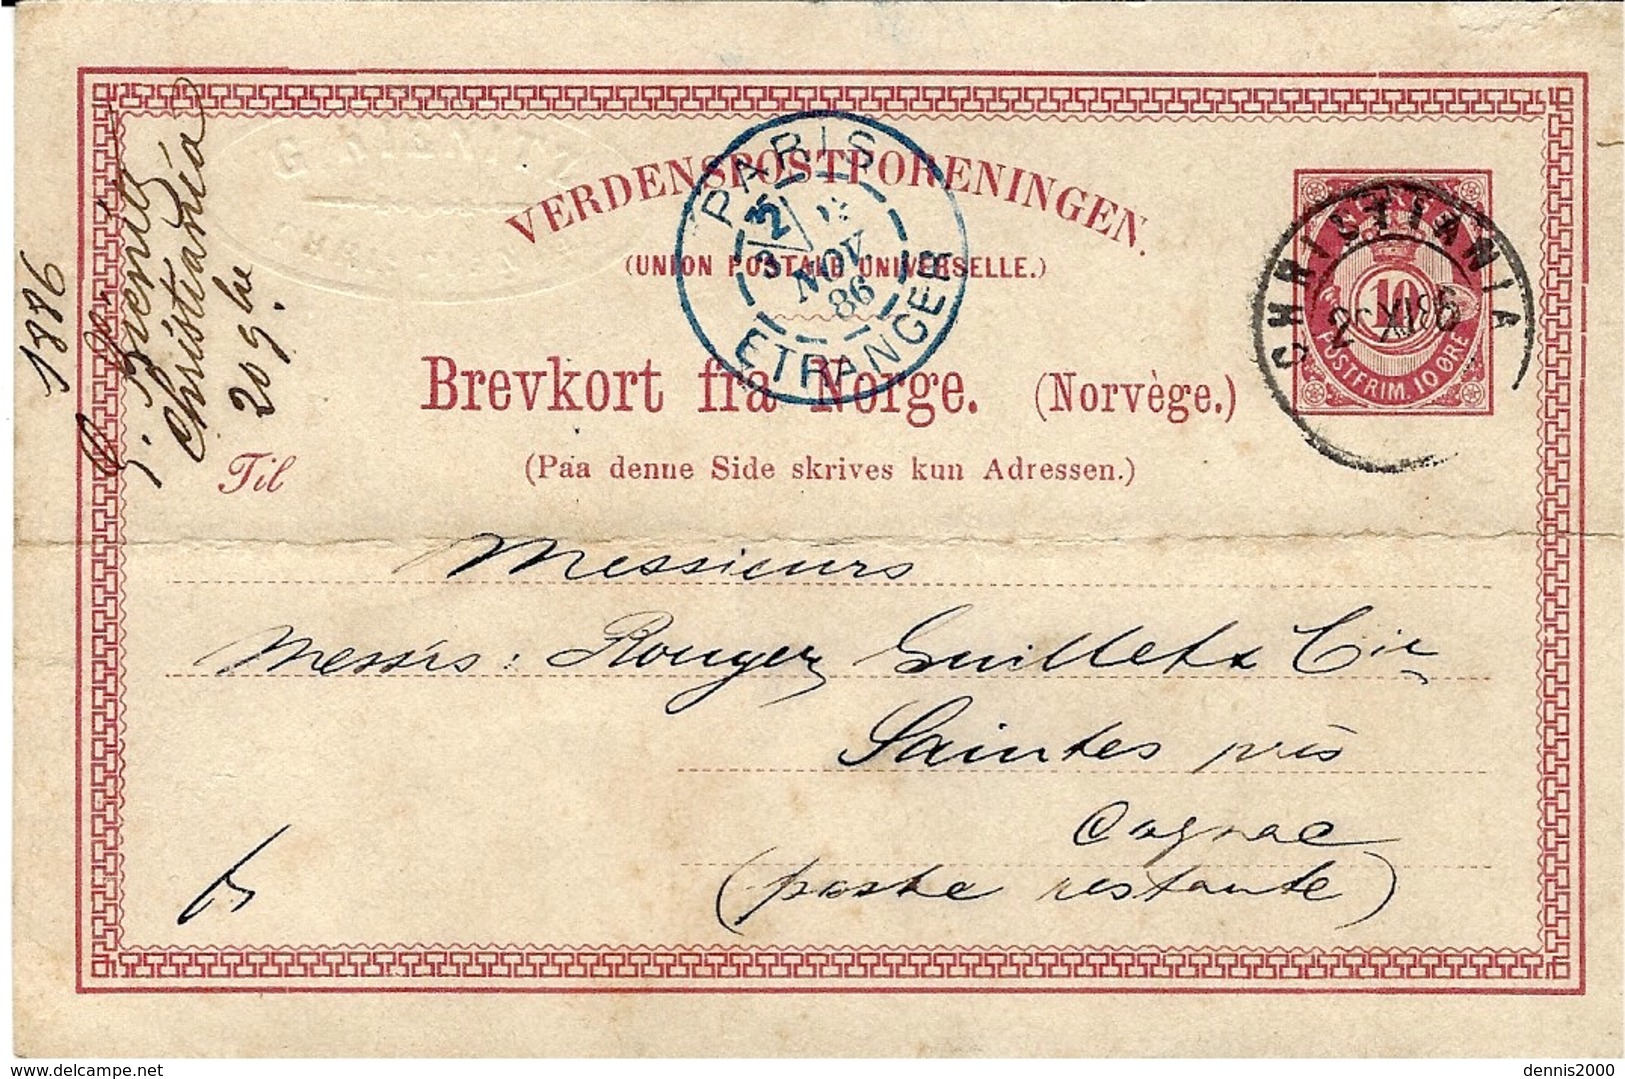 VERDENSPOSTFORENINGEN.
(UNION POSTALE UNIVERSELLE.)
Brevkort fra Norge. (Norvège.)
(Paa denne Side skrives kun Adressen.)
Til
PARIS
3
NOV.
86
ETRANGER
CHRISTIANIA
XI 86
NORGE
10
POSTFRIM. 10 ØRE
1886
Christiania
209
Messieurs
Messrs: Rouyer Guillet & Cie
Saintes près
Cognac
(poste restante)
dennis2000